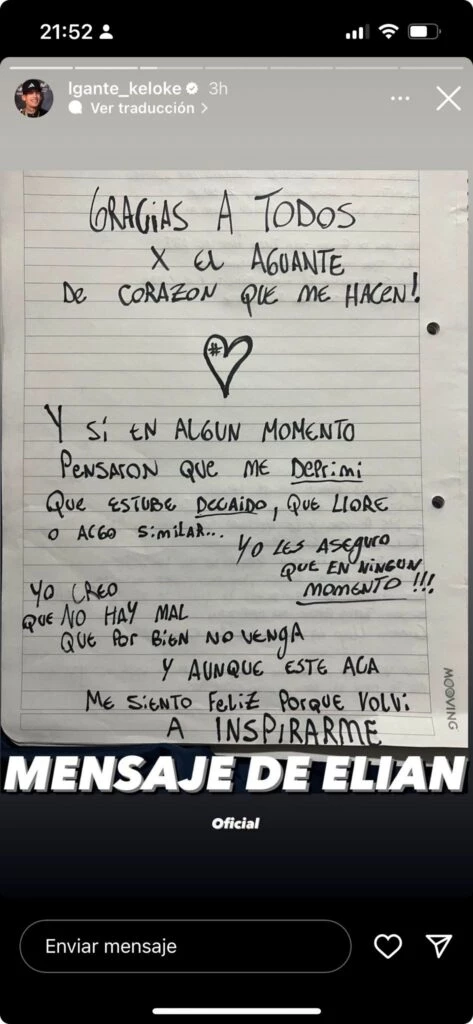 21:52
lgante_keloke 3h
Ver traducción >
GRACIAS A TODOS
X EL AGUANTE
DE CORAZON QUE ME HACEN!
#
Y SI EN ALGUN MOMENTO
PENSARON QUE ME DEPRIMI
QUE ESTUBE DECAIDO, QUE LLORE
O ALGO SIMILAR...
YO LES ASEGURO
QUE EN NINGUN
MOMENTO!!!
YO CREO
QUE NO HAY MAL
QUE POR BIEN NO VENGA
Y AUNQUE ESTE ACA
ME SIENTO FELIZ PORQUE VOLVI
A INSPIRARME
MOOVING
MENSAJE DE ELIAN
Oficial
Enviar mensaje